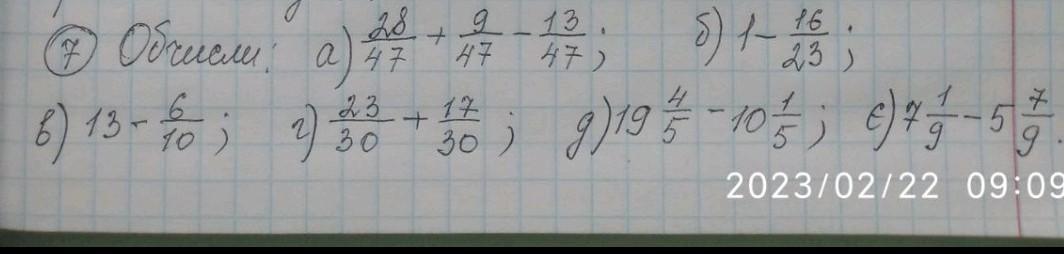 7 Обчисли: а) 28/47 + 9/47 - 13/47; б) 1 - 16/23;
в) 13 - 6/10; г) 23/30 + 17/30; д) 19 4/5 - 10 1/5; є) 7 1/9 - 5 7/9.
2023/02/22 09:09